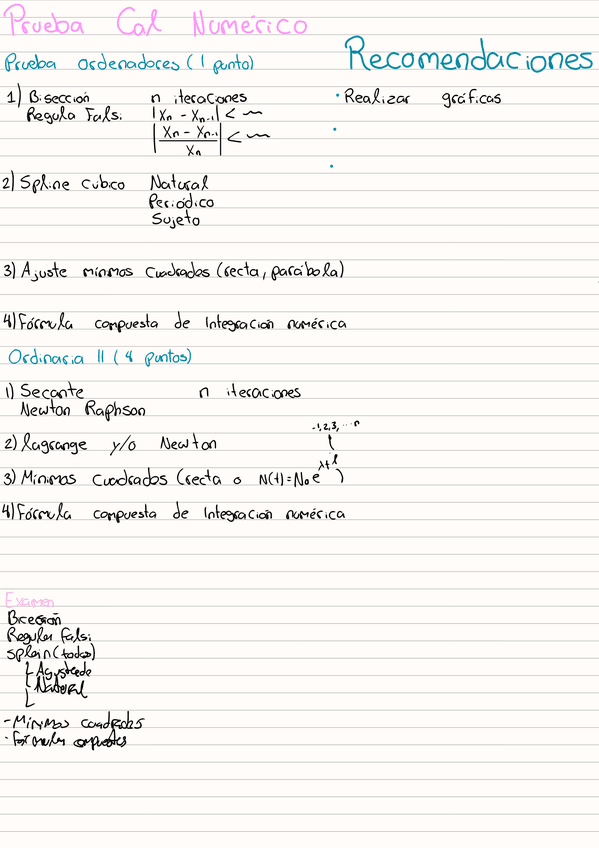 Prueba Cal Numérico
Prueba ordenadores (1 punto)
Recomendaciones
1) Bisección n iteraciones
Regula Falsi |Xn - Xn-1| <
|Xn - Xn-1 / Xn| <
· Realizar gráficas
2) Spline cúbico Natural
Periódico
Sujeto
3) Ajuste mínimos cuadrados (recta, parábola)
4) Fórmula compuesta de Integración numérica
Ordinaria II (4 puntos)
1) Secante n iteraciones
Newton Raphson
2) Lagrange y/o Newton
-1,2,3, ... n
3) Mínimos cuadrados (recta o N(t)=N₀e )
4) Fórmula compuesta de Integración numérica
Examen
Biceción
Regular Falsi
Splain (todos)
Natural
- Mínimos cuadrados
- Formulas compuestas